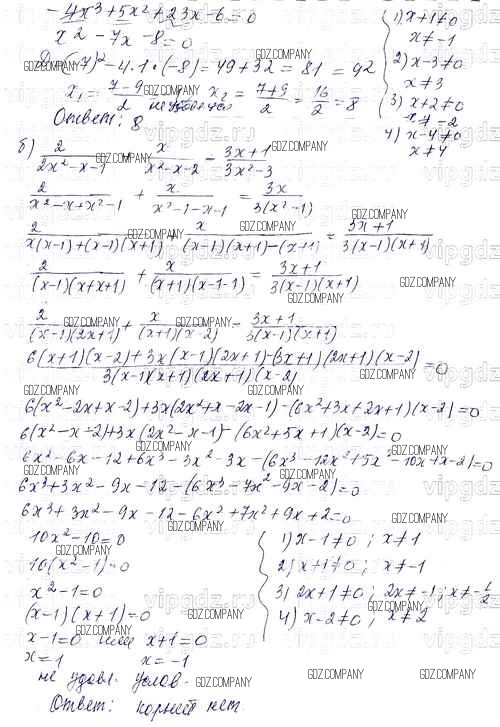 -4x³+5x²+23x-6=0
x²-7x-8=0
D=(-7)²-4·1·(-8)=49+32=81=9²
x₁=(7-9)/2 не удовл. x₂=(7+9)/2=16/2=8
Ответ: 8
1) x+1≠0
x≠-1
2) x-3≠0
x≠3
3) x+2≠0
x≠-2
4) x-4≠0
x≠4
б) 2/(2x²-x-1) + x/(x²-x-2) = (3x+1)/(3x²-3)
2/(x²-x+x²-1) + x/(x²-1-x-1) = 3x/(3(x²-1))
2/(x(x-1)+(x-1)(x+1)) + x/((x-1)(x+1)-(x+1)) = (3x+1)/(3(x-1)(x+1))
2/((x-1)(x+x+1)) + x/((x+1)(x-1-1)) = (3x+1)/(3(x-1)(x+1))
2/((x-1)(2x+1)) + x/((x+1)(x-2)) - (3x+1)/(3(x-1)(x+1))
(6(x+1)(x-2)+3x(x-1)(2x+1)-(3x+1)(2x+1)(x-2))/(3(x-1)(x+1)(2x+1)(x-2))=0
6(x²-2x+x-2)+3x(2x²+x-2x-1)-(6x²+3x+2x+1)(x-2)=0
6(x²-x-2)+3x(2x²-x-1)-(6x²+5x+1)(x-2)=0
6x²-6x-12+6x³-3x²-3x-(6x³-12x²+5x²-10x+x-2)=0
6x³+3x²-9x-12-(6x³-7x²-9x-2)=0
6x³+3x²-9x-12-6x³+7x²+9x+2=0
10x²-10=0
10(x²-1)=0
x²-1=0
(x-1)(x+1)=0
x-1=0 или x+1=0
x=1 x=-1
не удовл. услов.
Ответ: корней нет.
1) x-1≠0; x≠1
2) x+1≠0; x≠-1
3) 2x+1≠0; 2x≠-1; x≠-1/2
4) x-2≠0; x≠2
GDZ.COMPANY
vipgdz.ru